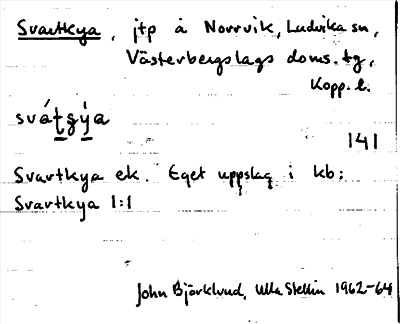 Svartkya, jtp å Norrvik, Ludvika sn,
Västerbergslags doms. tg,
Kopp. l.
svátʒýa
141
Svartkya ek. Eget uppslag i kb:
Svartkya 1:1
John Björklund, Ulla Stellin 1962-64